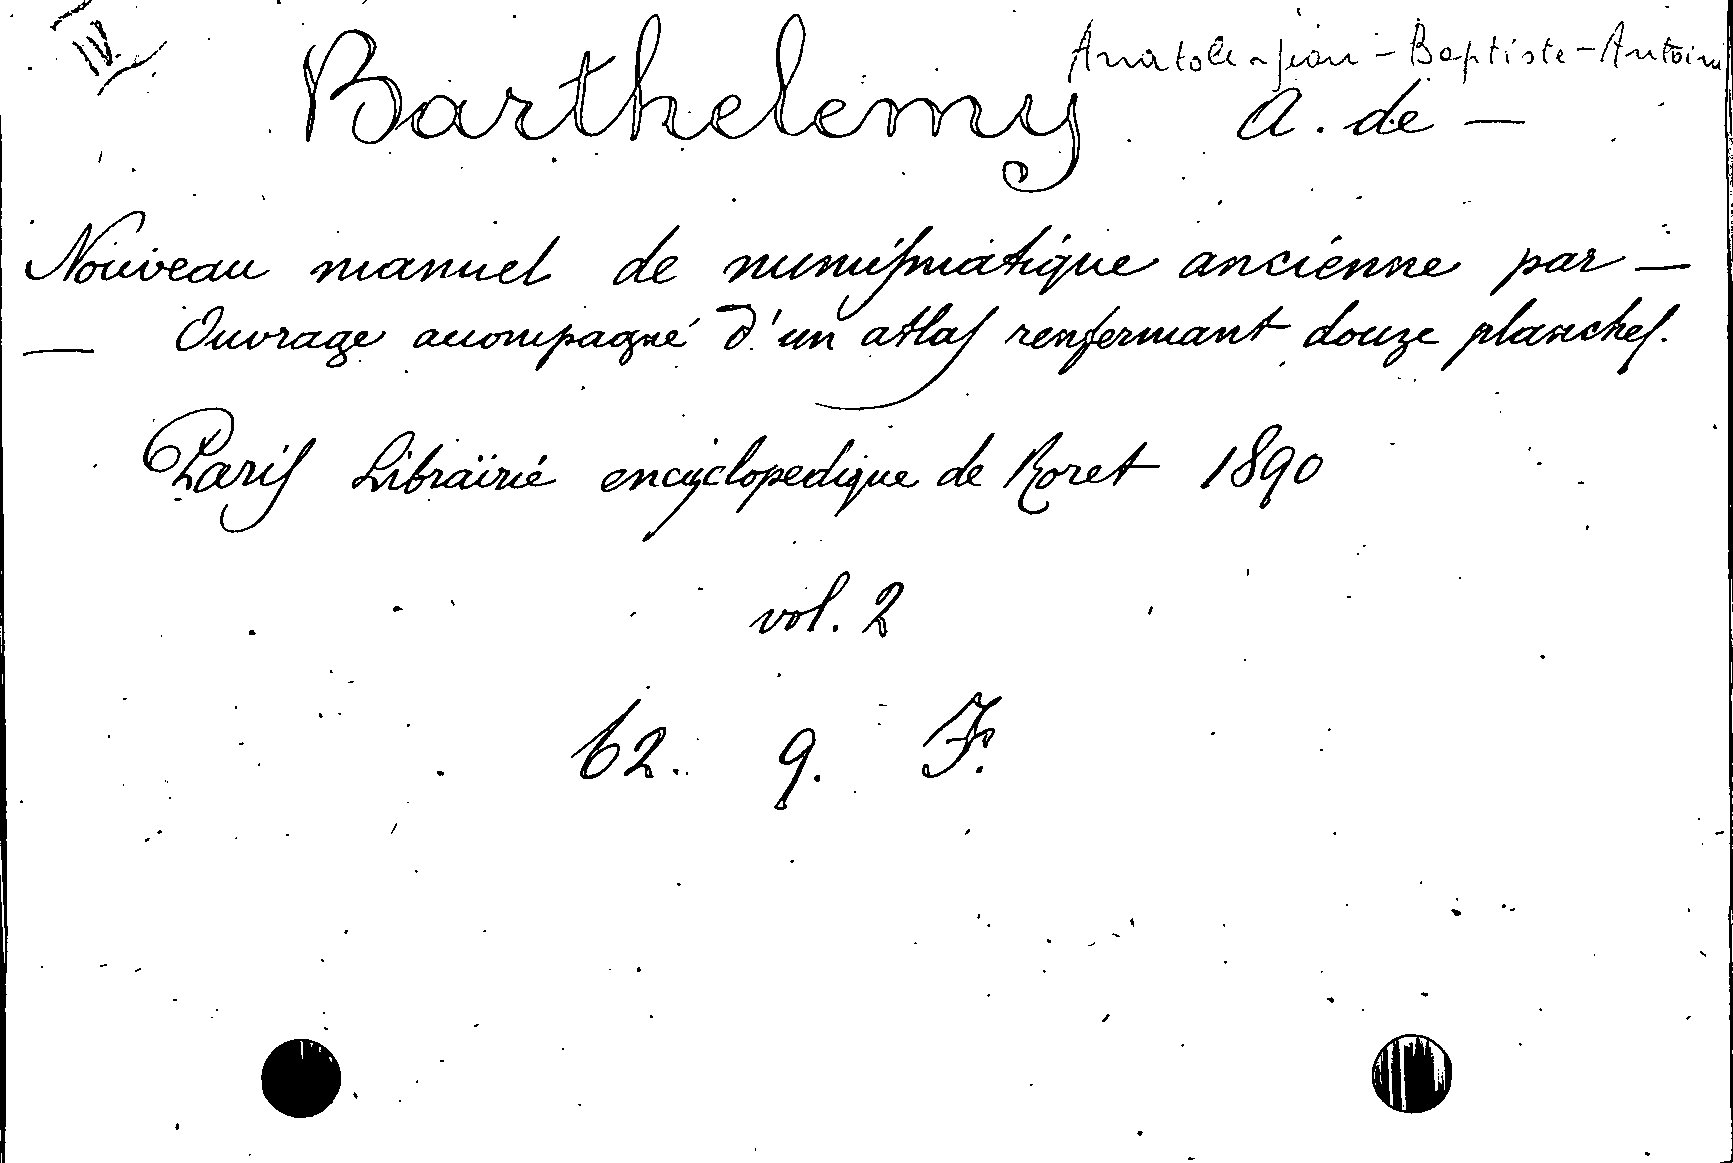 IV.
Anatole-Jean-Baptiste-Antoine
Barthelemy A. de —
Nouveau manuel de numismatique anciénne par —
— Ouvrage acompagné d'un atlas renfermant douze planches.
Paris Librairié encyclopedique de Roret 1890
vol. 2
62. 9. F.